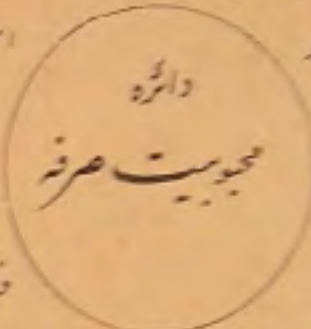 دائرہ
محبوبیت صرفہ